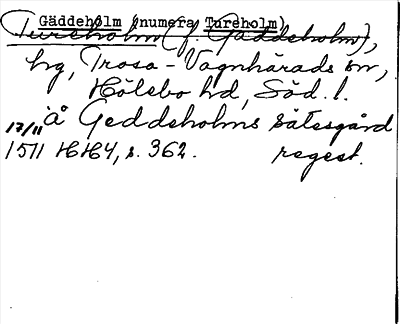 Gäddeholm (numera Tureholm)
Tureholm (f. Gäddeholm),
hg, Trosa-Vagnhärads sn,
Hölebo hd, Söd. l.
17/11 å Geddeholms sätesgård
1511 HH4, s. 362. regest.